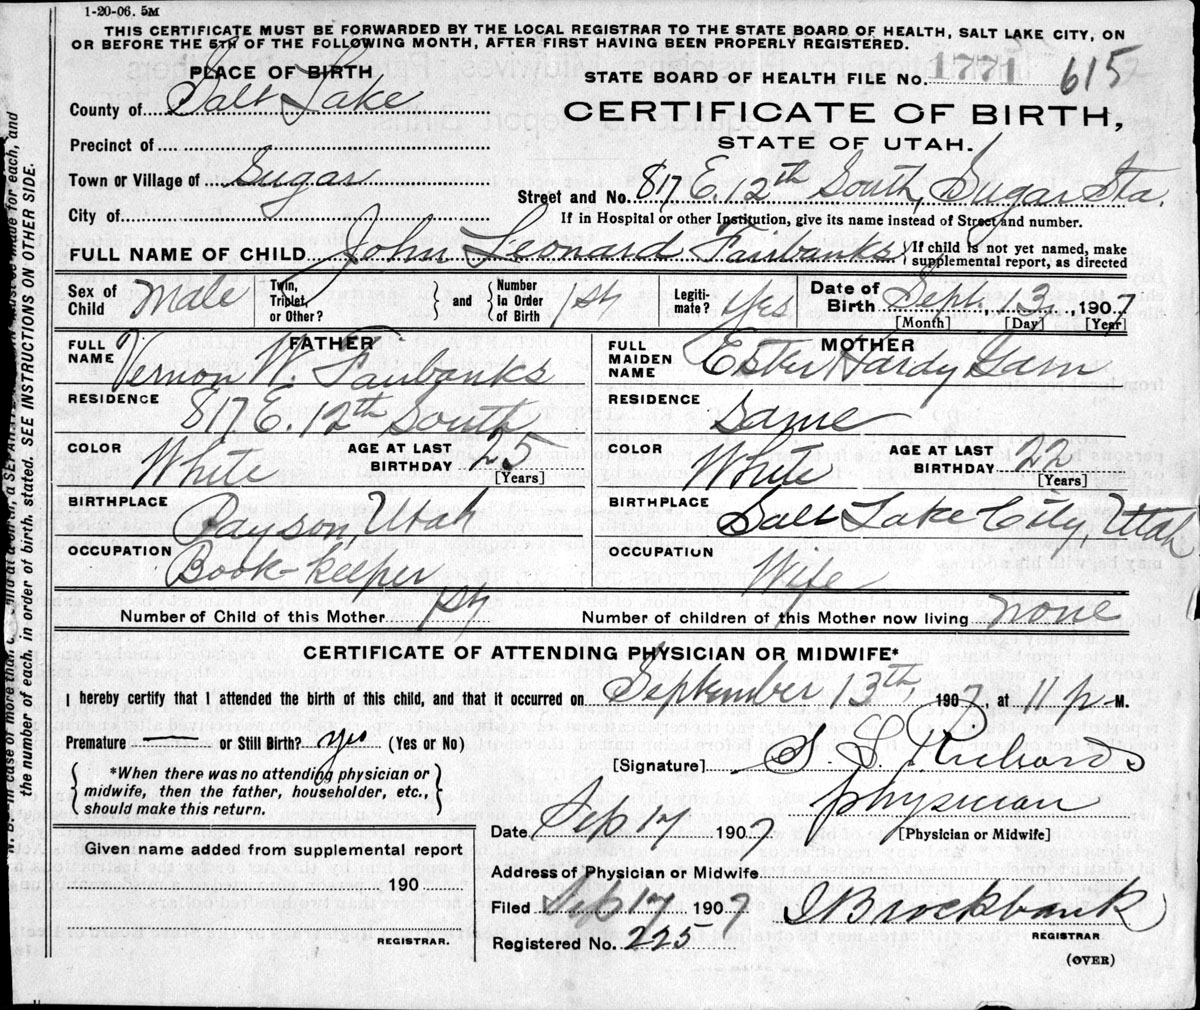 1-20-06. 5M
THIS CERTIFICATE MUST BE FORWARDED BY THE LOCAL REGISTRAR TO THE STATE BOARD OF HEALTH, SALT LAKE CITY, ON
OR BEFORE THE 5TH OF THE FOLLOWING MONTH, AFTER FIRST HAVING BEEN PROPERLY REGISTERED.
PLACE OF BIRTH
STATE BOARD OF HEALTH FILE NO. 1771 615
County of Salt Lake
CERTIFICATE OF BIRTH,
STATE OF UTAH.
Precinct of
Town or Village of Sugar
Street and No. 817 E. 12th South, Sugar Sta.
City of
If in Hospital or other Institution, give its name instead of Street and number.
FULL NAME OF CHILD John Leonard Fairbanks
If child is not yet named, make
supplemental report, as directed
Sex of Child Male
Twin, Triplet, or Other? and Number In Order of Birth 1st
Legiti-mate? Yes
Date of Birth Sept. 13, 1907
[Month] [Day] [Year]
FATHER
FULL NAME Vernon W. Fairbanks
RESIDENCE 817 E. 12th South
COLOR White AGE AT LAST BIRTHDAY 25 [Years]
BIRTHPLACE Payson, Utah
OCCUPATION Book-keeper
MOTHER
FULL MAIDEN NAME Ester Hardy Garn
RESIDENCE same
COLOR White AGE AT LAST BIRTHDAY 22 [Years]
BIRTHPLACE Salt Lake City, Utah
OCCUPATION Wife
Number of Child of this Mother 1st
Number of children of this Mother now living none
CERTIFICATE OF ATTENDING PHYSICIAN OR MIDWIFE*
I hereby certify that I attended the birth of this child, and that it occurred on September 13th, 1907, at 11 p M.
Premature — or Still Birth? yes (Yes or No)
[Signature] S. L. Richards
physician
[Physician or Midwife]
*When there was no attending physician or
midwife, then the father, householder, etc.,
should make this return.
Date Sep 17 1907
Given name added from supplemental report
190
REGISTRAR.
Address of Physician or Midwife
Filed Sep 17 1907
Brockbank
REGISTRAR
Registered No. 225
(OVER)
the number of each, in order of birth, stated. SEE INSTRUCTIONS ON OTHER SIDE.